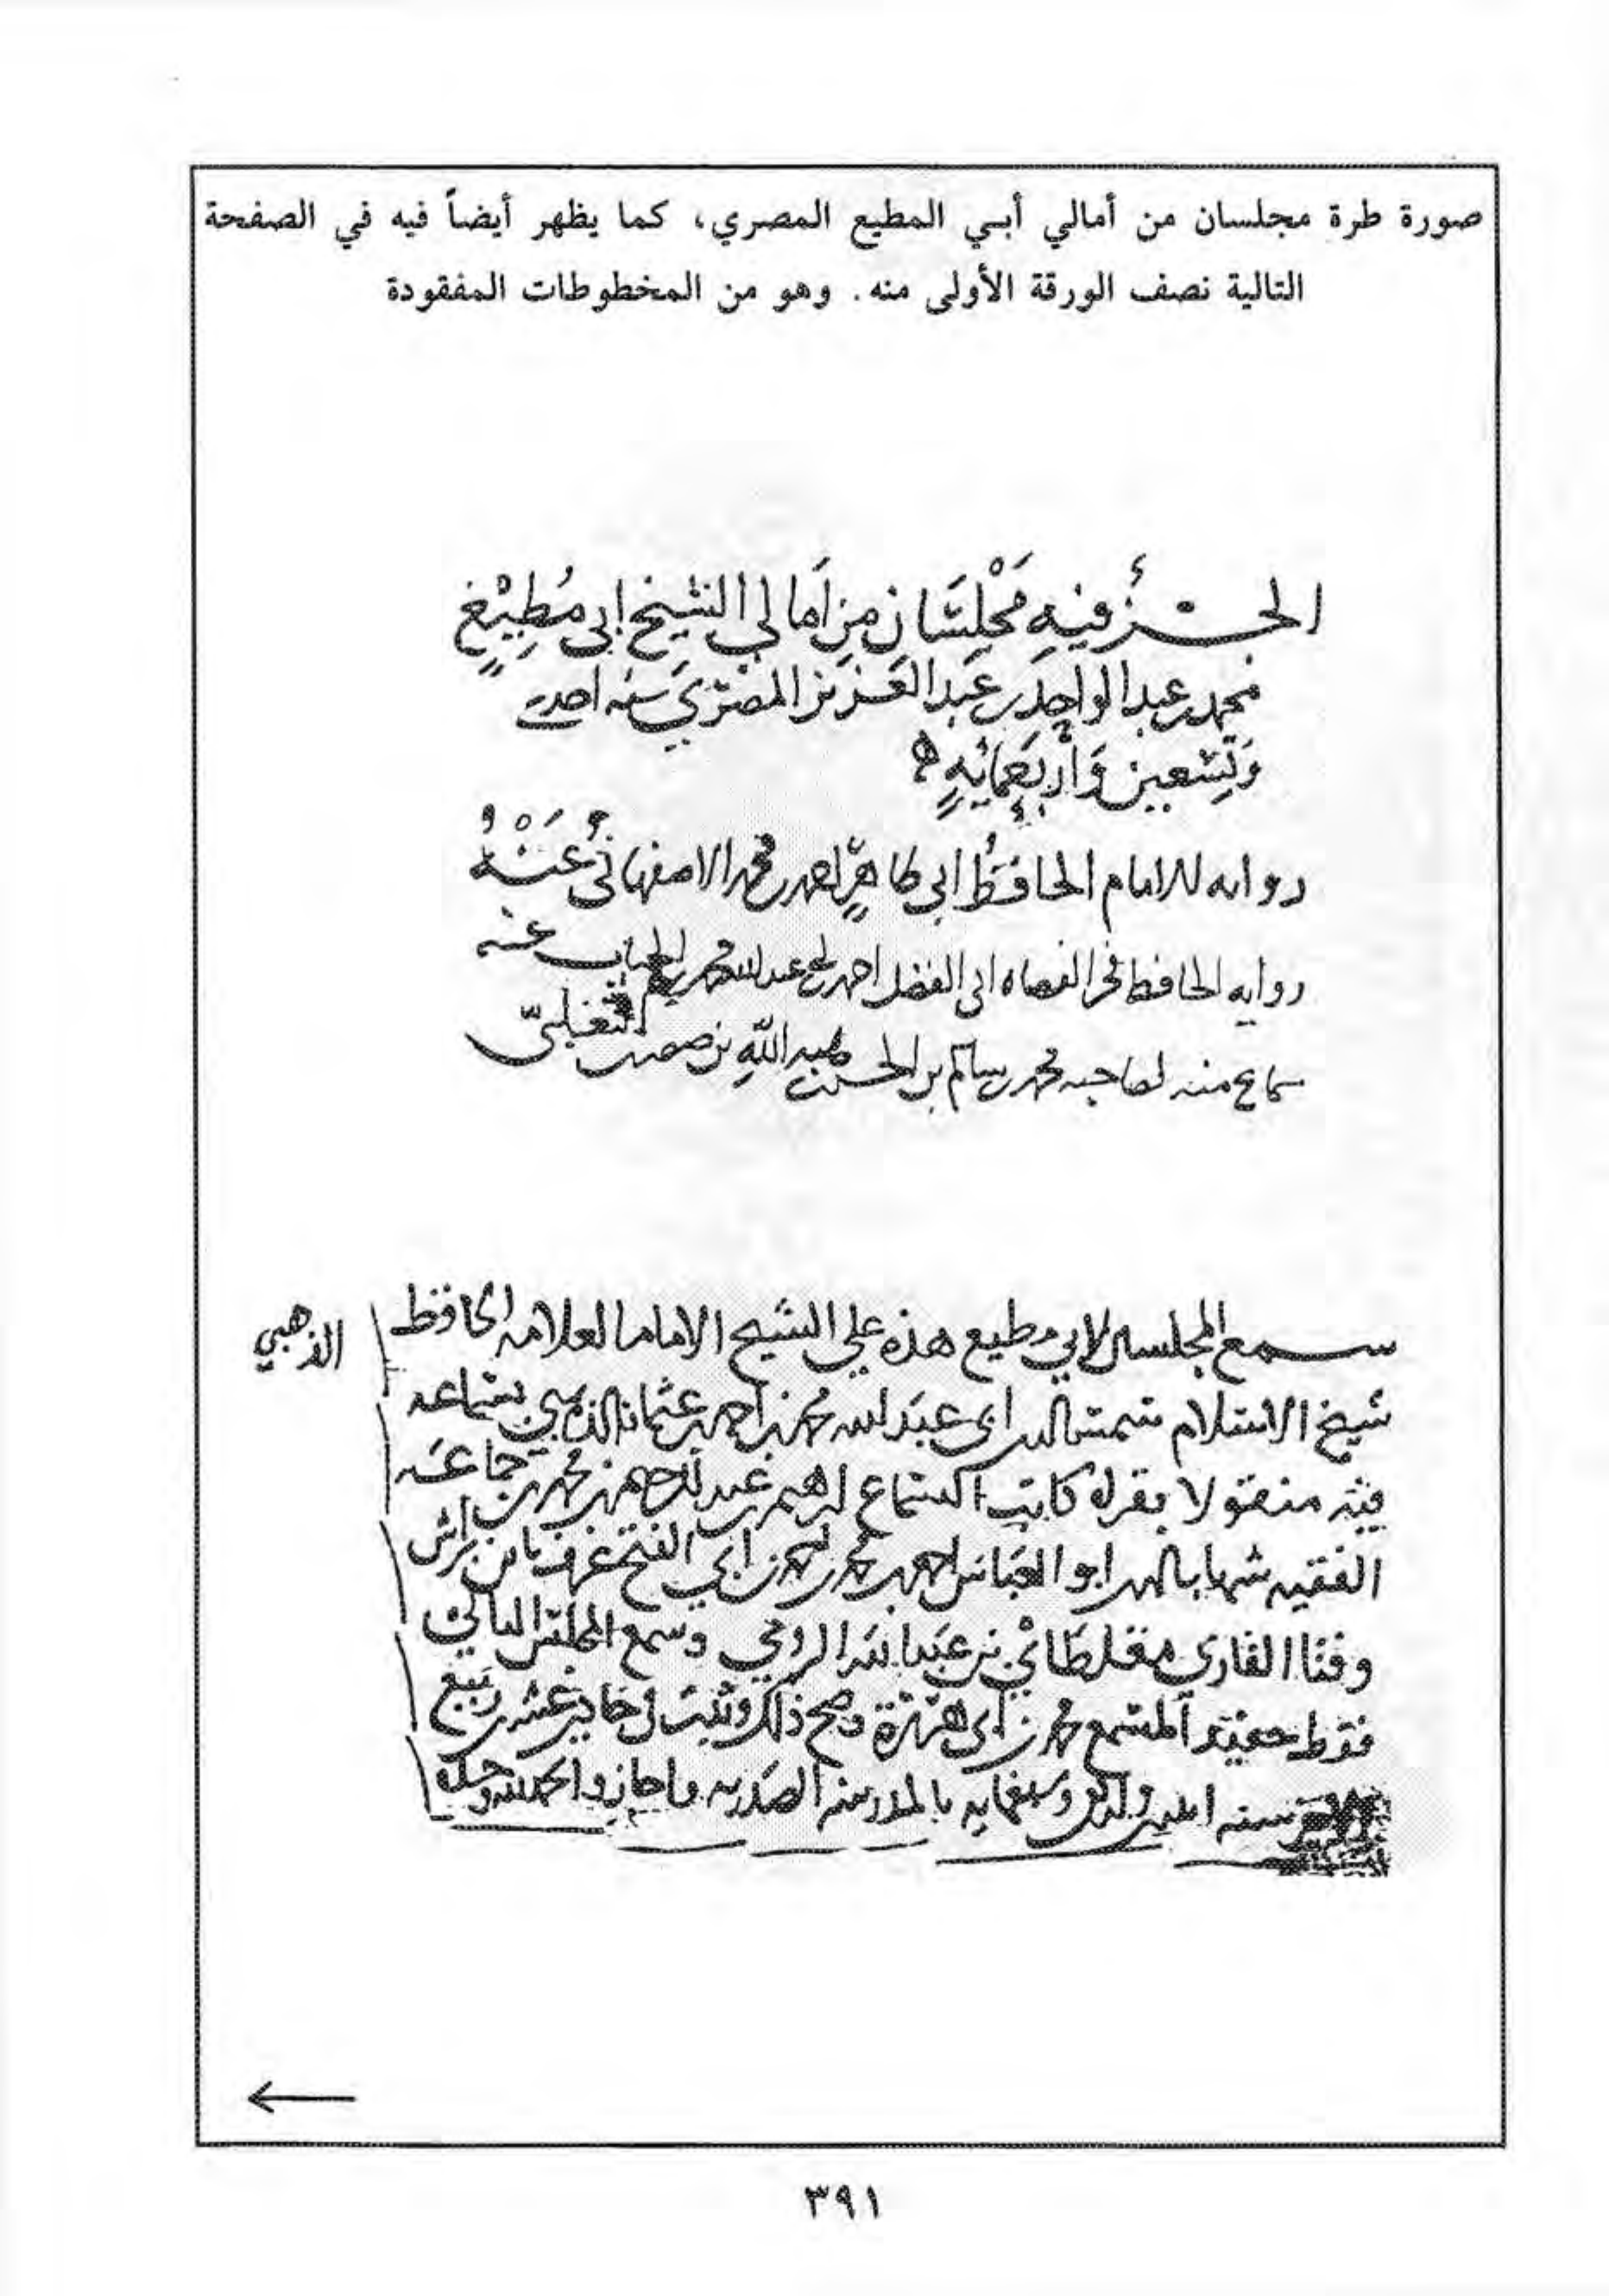 صورة طرة مجلسان من أمالي أبي المطيع المصري، كما يظهر أيضاً فيه في الصفحة
التالية نصف الورقة الأولى منه. وهو من المخطوطات المفقودة
الجزء فيه مَجْلِسَان مِن أَمالي الشيخ ابي مُطِيْعٍ
محمد بن عبد الواحد بن عَبد العَزيز المصْرِيّ سنه احدى
وَتِسْعين وَأَرْبَعمائهِ
روايه الامام الحافظ ابي طاهرٍ احمد بن محمد الاصفهانيّ عَنْهُ
روايه الحافظ فخر القضاه ابي الفضل احمد بن عبد الله محمد بن الجباب عنه
سماع منه لصاحبه محمد بن سالم بن الحسن بن هبه اللهِ بن صصرى التغلبيّ
سمع المجلسين لابي مطيع هذه علي الشيخ الامام العلامه الحافظ
الذهبي
شيخ الاسلام شمس الدين ابي عبد الله محمد بن احمد بن عثمان الذهبي بسماعه
فيه منقولا بقراه كاتب السماع ابرهيم بن عبد الرحمن بن محمد بن جماعه
الفقيه شهاب الدين ابو العباس احمد بن محمد بن ابي الفتح عرف بابن
وفتا القارى مغلطاي بن عبد الله الرومي وسمع المجلس الثاني
فقط حفيد المسمع محمد بن ابي هريرة وصح ذلك وثبت في حادي عشر ربيع
سنه اثنين واربعين وسبعمايه بالمدرسه الصدريه واجاز والحمد لله وحده
٣٩١